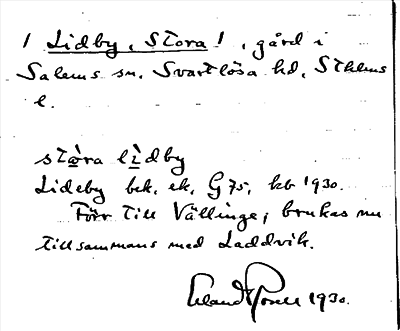 / Lidby, Stora /, gård i
Salems sn. Svartlösa hd, Sthlms
l.
stọ̀ra lì̱dby
Lideby bek. ek. G 75, kb 1930.
Förr till Vällinge, brukas nu
tillsammans med Laddvik.
1930.